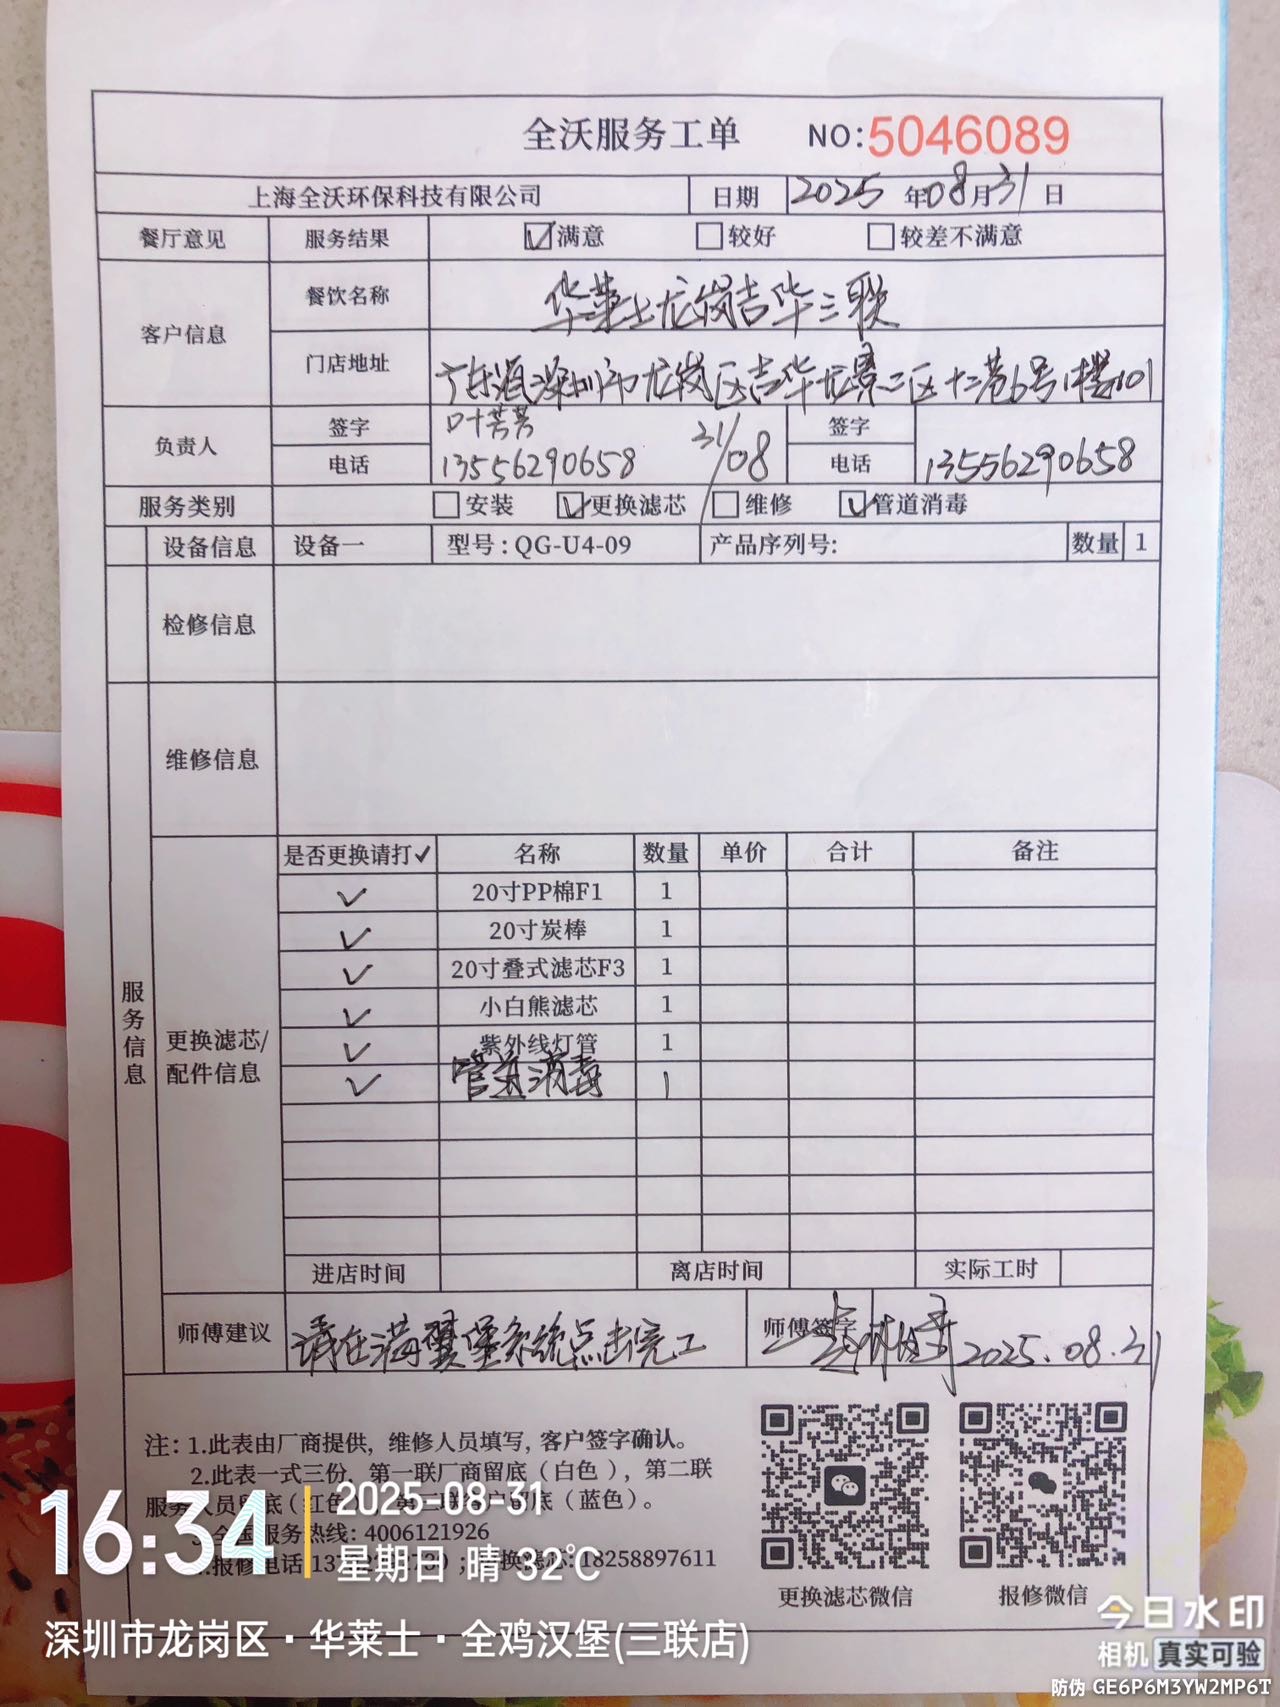 全沃服务工单 NO:5046089
上海全沃环保科技有限公司 日期 2025年08月31日
餐厅意见 服务结果 ☑满意 □较好 □较差不满意
客户信息 餐饮名称 华莱士龙岗吉华三联
门店地址 广东省深圳市龙岗区吉华龙景二区十二巷6号1楼101
负责人 签字 叶芳芳 31/08 签字
电话 13556290658 电话 13556290658
服务类别 □安装 ☑更换滤芯 □维修 ☑管道消毒
设备信息 设备一 型号:QG-U4-09 产品序列号: 数量 1
检修信息
维修信息
服务信息
更换滤芯/配件信息
是否更换请打✓ 名称 数量 单价 合计 备注
✓ 20寸PP棉F1 1
✓ 20寸炭棒 1
✓ 20寸叠式滤芯F3 1
✓ 小白熊滤芯 1
✓ 紫外线灯管 1
✓ 管道消毒 1
进店时间 离店时间 实际工时
师傅建议 请在满翼堡系统点击完工 师傅签字 2025.08.31
注:1.此表由厂商提供,维修人员填写,客户签字确认。
2.此表一式三份,第一联厂商留底(白色),第二联
服务人员留底(红色) 留底(蓝色)。
全国服务热线:4006121926
报修电话 换滤芯:18258897611
更换滤芯微信 报修微信
16:34 2025-08-31
星期日 晴 32℃
深圳市龙岗区·华莱士·全鸡汉堡(三联店)
今日水印
相机 真实可验
防伪 GE6P6M3YW2MP6T